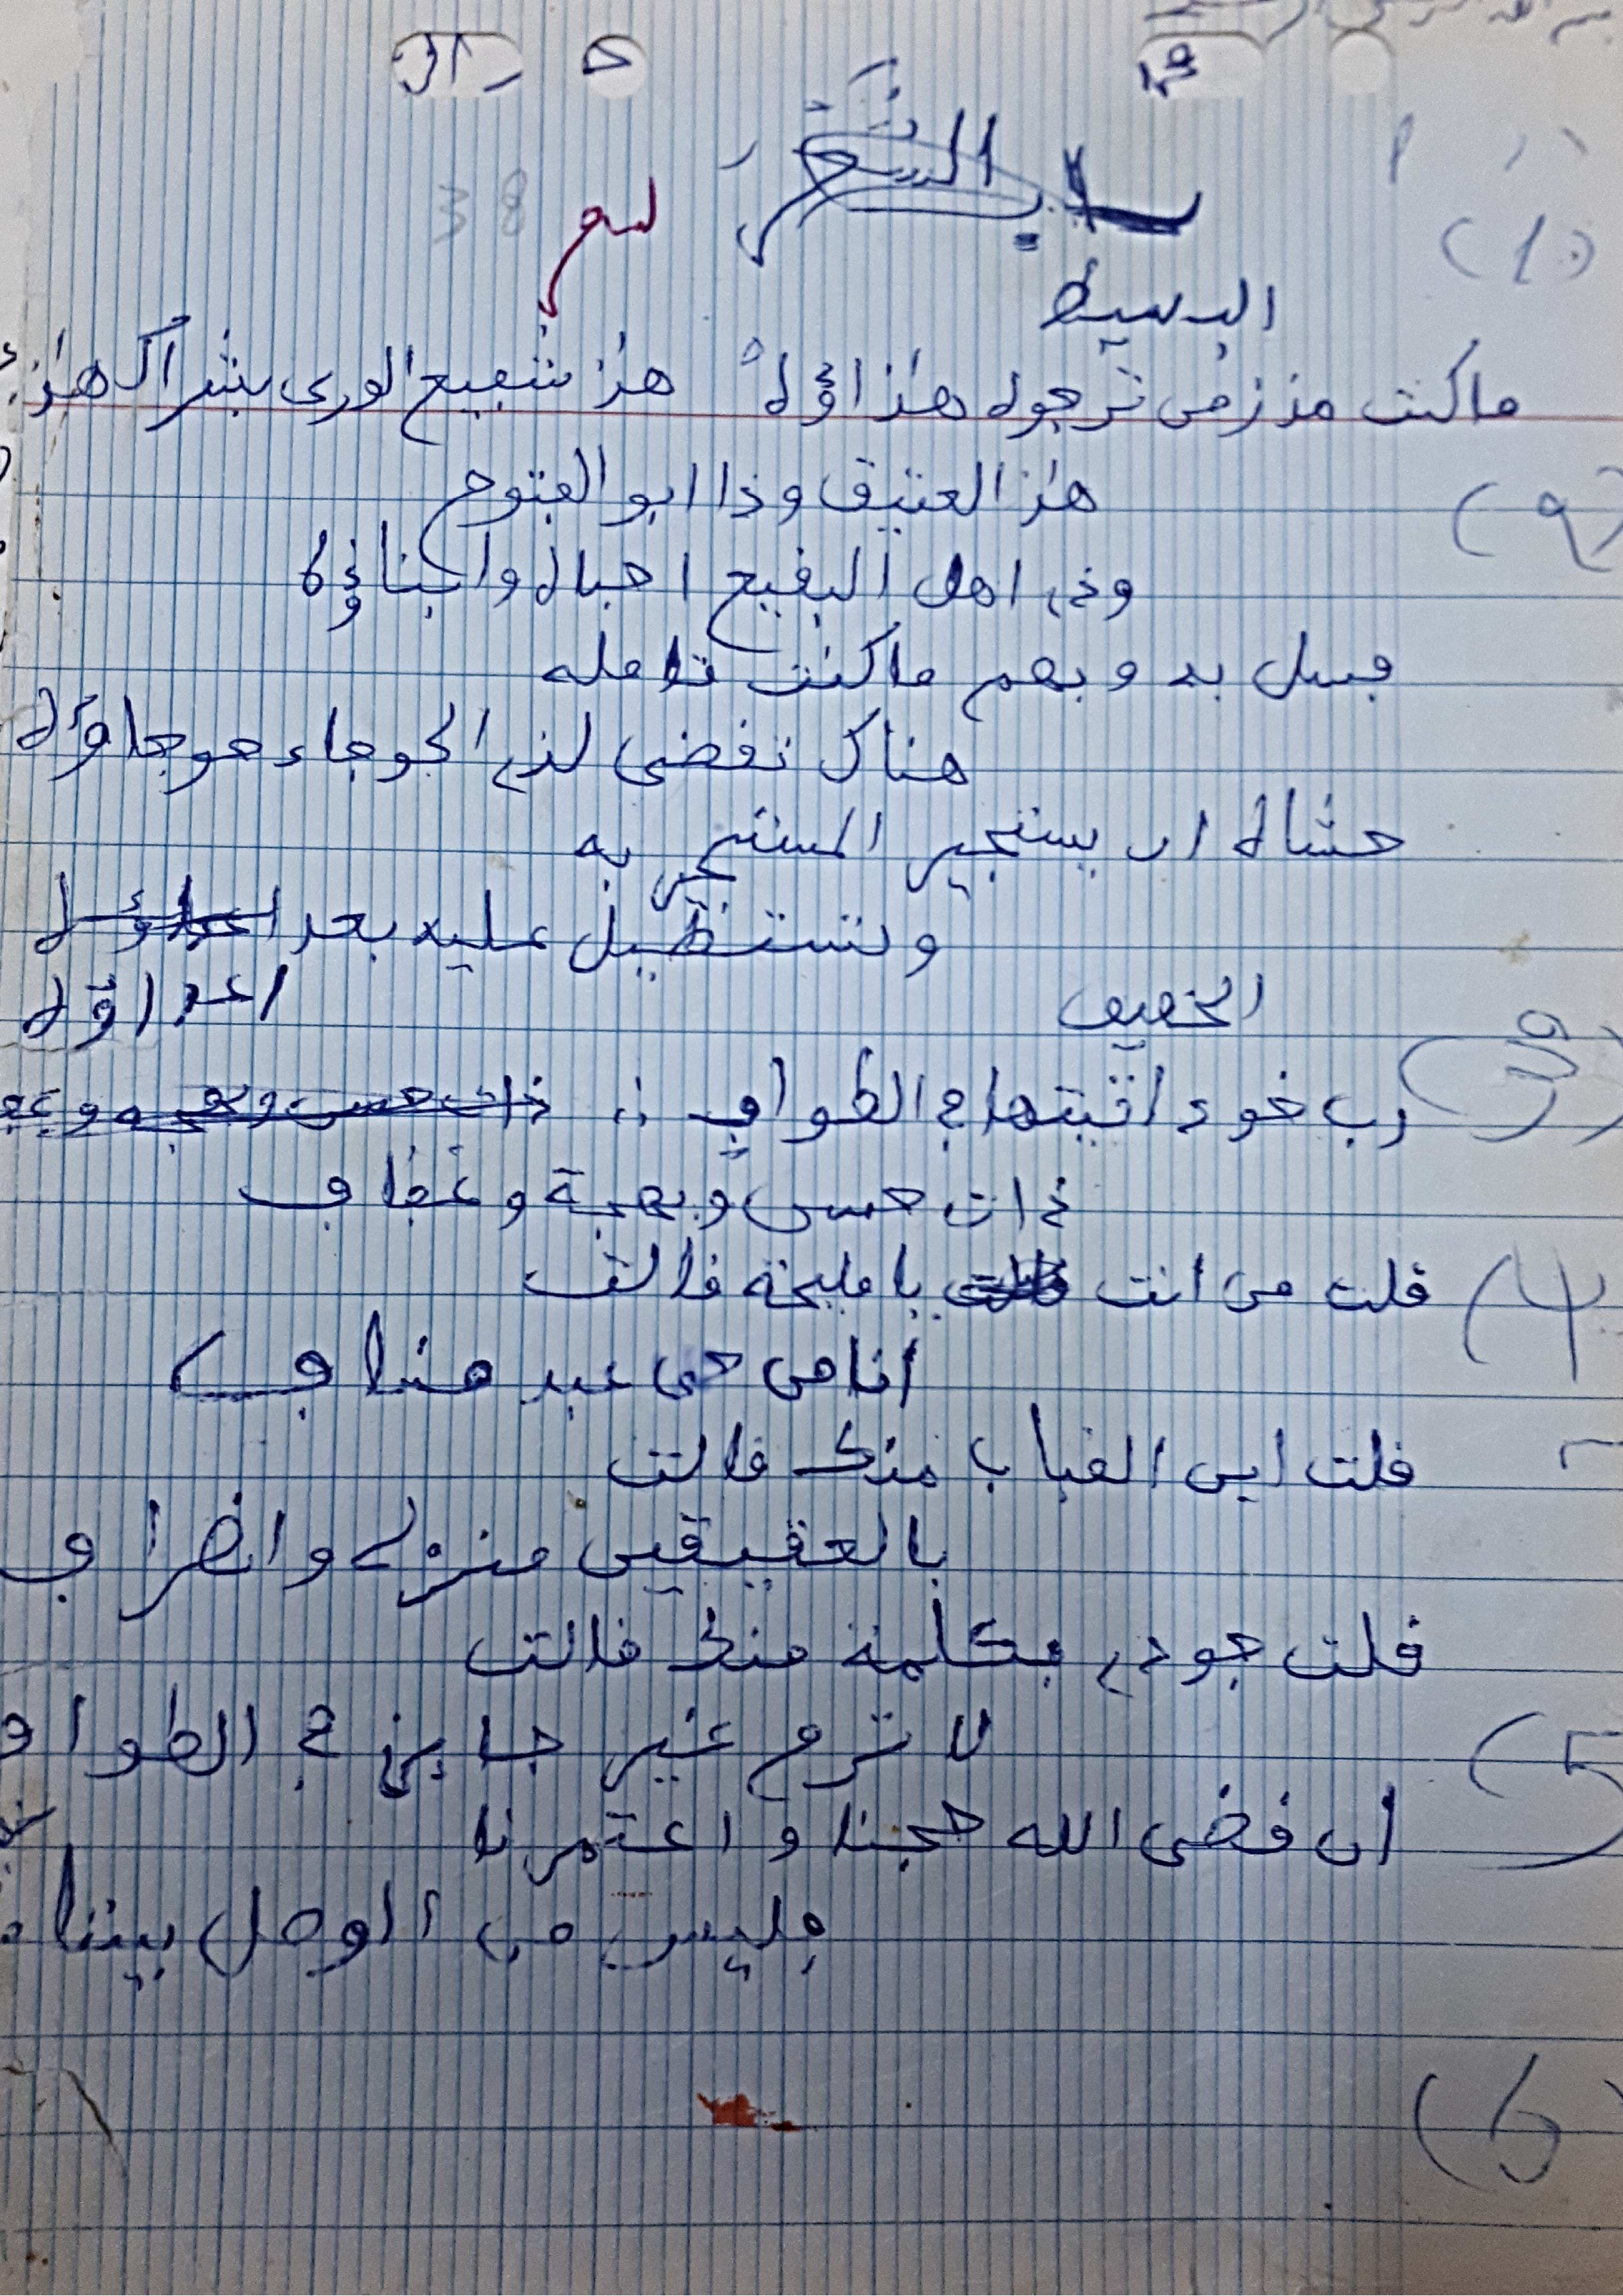 باب الشعر
38
(1)
البسيط
ما كنت مذ زمن ترجوه هذا ؤه هذا شفيع الورى بشراك هذا
هذا العتيق وذا ابو الفتوح
(2)
وذي اهل البقيع احباه وابناؤه
فسل به وبهم ما كنت تامله
هناك تقضى لذي الحوجاء حوجاؤه
حشاه ان يستجير المستجير به
وتستطيل عليه بعد اعداؤه
اعداؤه
الخفيف
(3)
رب خود اتيتها في الطواف ∴ ذات حسن وبهجة وعف
ذات حسن وبهجة وعفاف
(4)
قلت من انت يا مليحة قالت
انا من حي عبد مناف
قلت اين القباب منك قالت
بالعقيقين منزلي وانصراف
قلت جودي بكلمة منك قالت
لا ترم غير جايز في الطواف
(5)
ان قضى الله حجنا واعتمرنا
فليس من الوصل بيننا
(6)